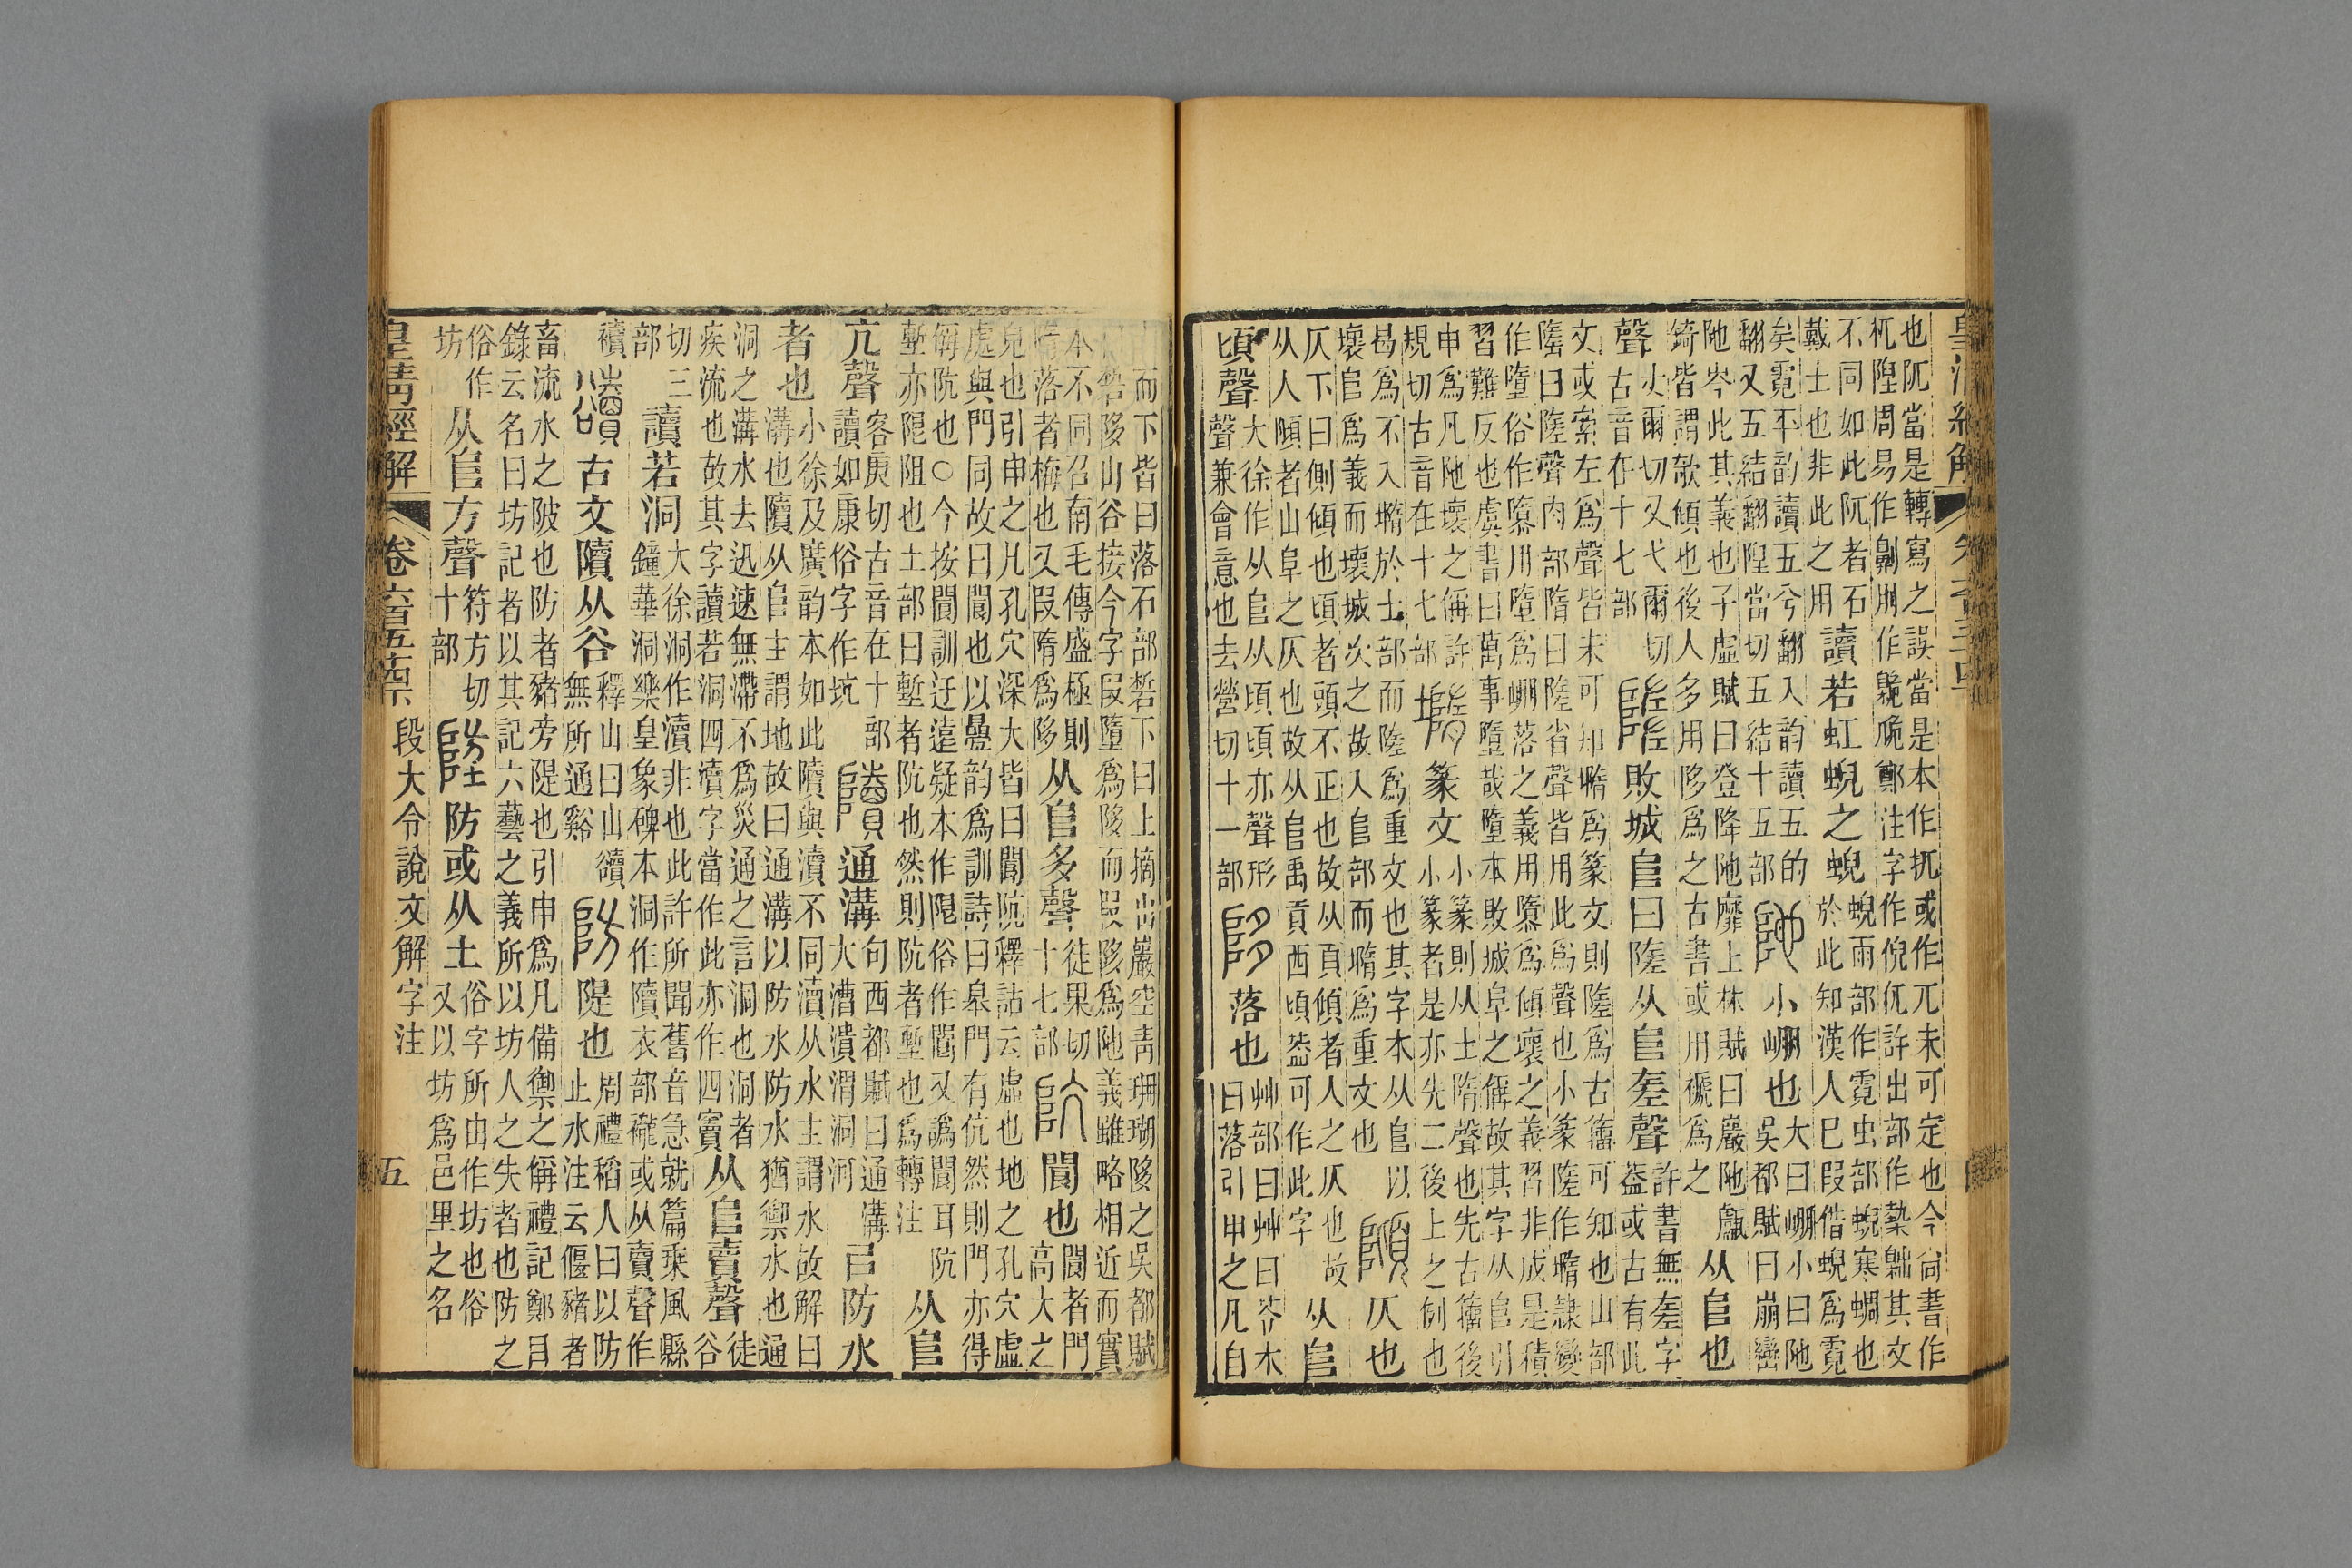 皇清經解
也阢當是轉寫之誤當是本作抓或作兀未可定也今尙書作
杌隉周易作劓刖作臲卼鄭注字作倪㐳許出部作槷𪗉其文
不同如此阮者石
戴土也非此之用
讀若虹蜺之蜺
蜺雨部作霓虫部蜺寒蜩也
於此知漢人已叚借蜺爲霓
矣霓不韵讀五兮翻入韵讀五的
翻又五結翻隉當切五結十五部
小崩也
大曰崩小曰阤
吳都賦曰崩巒
阤岑此其義也子虛賦曰登降阤靡上林賦曰巖阤甗
錡皆謂欹傾也後人多用陊爲之古書或用褫爲之
从𨸏也
聲
丈爾切又弋爾切
古音在十七部
敗城𨸏曰隓从𨸏㚍聲
許書無㚍字
蓋或古有此
文或㝁左爲聲皆未可知墮爲篆文則隓爲古籒可知也山部
隓曰隓聲肉部隋曰隓省聲皆用此爲聲也小篆隓作墮隸變
作墮俗作隳用墮爲崩落之義用隳爲傾壞之義習非成是積
習難反也虞書曰萬事墮哉墮本敗城阜之偁故其字从𨸏引
申爲凡阤壞之偁許
規切古音在十七部
篆文
小篆則从土隋聲也先古籒後
小篆者是亦先二後上之例也
曷爲不入墮於土部而隓爲重文也其字本从𨸏以
壞𨸏爲義而壞城次之故人𨸏部而墮爲重文也
仄也
仄下曰側傾也頃者頭不正也故从頁傾者人之仄也故
从人𨻺者山阜之仄也故从𨸏禹貢西頃蓋可作此字
从𨸏
頃聲
大徐作从𨸏从頃頃亦聲形
聲兼會意也去營切十一部
落也
艸部曰艸曰苓木
曰落引申之凡自
而下皆曰落石部硩下曰上摘山巖空靑珊瑚陊之吳都賦
硩陊山谷接今字叚墮爲陊而叚陊爲阤義雖略相近而實
本不同召南毛傳盛極則
隋落者梅也又叚隋爲陊
从𨸏多聲
徒果切
十七部
閬也
閬者門
高大之
皃也引申之凡孔穴深大皆曰閬阬釋詁云虛也地之孔穴虛
處與門同故曰閬也以曡韵爲訓詩曰皋門有伉然則門亦得
偁阬也○今按閬訓迂遠疑本作阸俗作閫又譌閬耳阬
塹亦阸阻也土部曰塹者阬也然則阬者塹也爲轉注
从𨸏
亢聲
客庚切古音在十部
讀如康俗字作坑
通溝
句西都賦曰通溝
大漕潰渭洞河
㠯防水
者也
小徐及廣韵本如此隫與瀆不同瀆从水主謂水故解曰
溝也隫从𨸏主謂地故曰通溝以防水防水猶禦水也通
洞之溝水去迅速無滯不爲災通之言洞也洞者
疾流也故其字讀若洞四瀆字當作此亦作四竇
从𨸏賣聲
徒
谷
切三
部
讀若洞
大徐洞作瀆非也此許所聞舊音急就篇乗風縣
鐘華洞樂皇象碑本洞作隫衣部襱或从賣聲作
襩
古文隫从谷
釋山曰山䜱
無所通谿
隄也
周禮稻人曰以防
止水注云偃豬者
畜流水之陂也防者豬旁隄也引申爲凡備禦之偁禮記鄭目
錄云名曰坊記者以其記六藝之義所以坊人之失者也防之
俗作
坊
从𨸏方聲
符方切
十部
防或从土
俗字所由作坊也俗
又以坊爲邑里之名
皇淸經解
卷六百五十四
段大令說文解字注
五